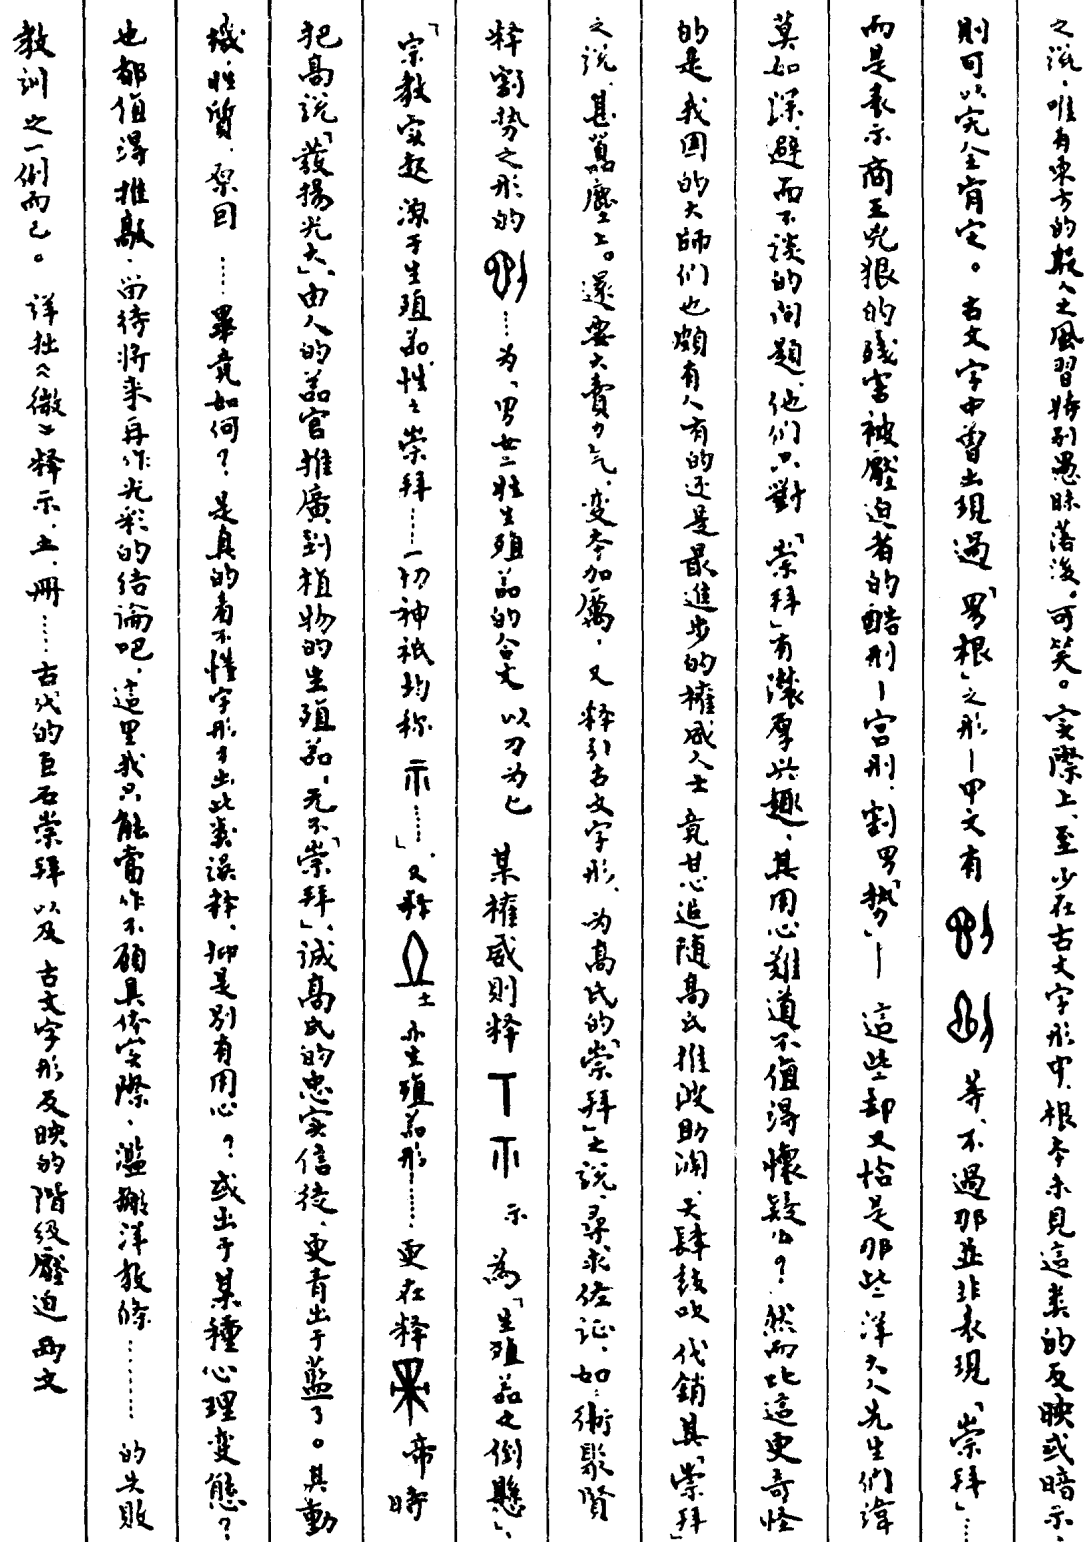 之説，唯有東方的殷人之風習特别愚昧落後。可笑。实際上，至少在古文字形中，根本未見這类的反映或暗示，
則可以完全肯定。古文字中曾出現過「男根」之形—甲文有 等，不過那並非表現「崇拜」……
而是表示商王兇狠的残害被壓迫者的酷刑—宫刑，割男「勢」— 這些却又恰是那些洋大人先生們諱
莫如深，避而不談的问題，他们只對「崇拜」有濃厚兴趣，其用心难道不值得懷疑么？然而比這更奇怪
的是我国的大師们也頗有人有的还是最進步的權威人士竟甘心追随高氏推波助澜，大肆鼓吹代銷其「崇拜」
之说，甚囂塵上。還要大費力气，变本加厲，又释引古文字形，为高氏的「崇拜」之説，尋求佐证，如：衛聚賢
释割势之形的 ……为，男女二性生殖器的合文 以刀为匕 某權威則释 丅 示 為「生殖器之倒懸」，
「宗教实起源于生殖器，性之崇拜……一切神祇均称 示……」，又释 土 亦生殖器形……，更在释 帝時
把高説「發揚光大」，由人的器官推廣到植物的生殖器，无不「崇拜」，诚高氏的忠实信徒，更青出于藍了。其動
機，性質，原因 ……畢竟如何？是真的看不懂字形才出此类误释，抑是别有用心？或出于某種心理变態？
也都值得推敲，留待将来再作光彩的结論吧，這里我只能當作不顧具体实際，濫搬洋教條……的失敗
教訓之一例而已。詳拙《微》释示，土，冊……古代的巨石崇拜以及 古文字形反映的階级壓迫 两文